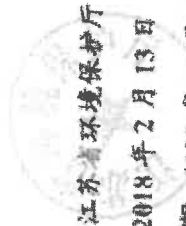 江苏省环境保护厅
2018年2月13日